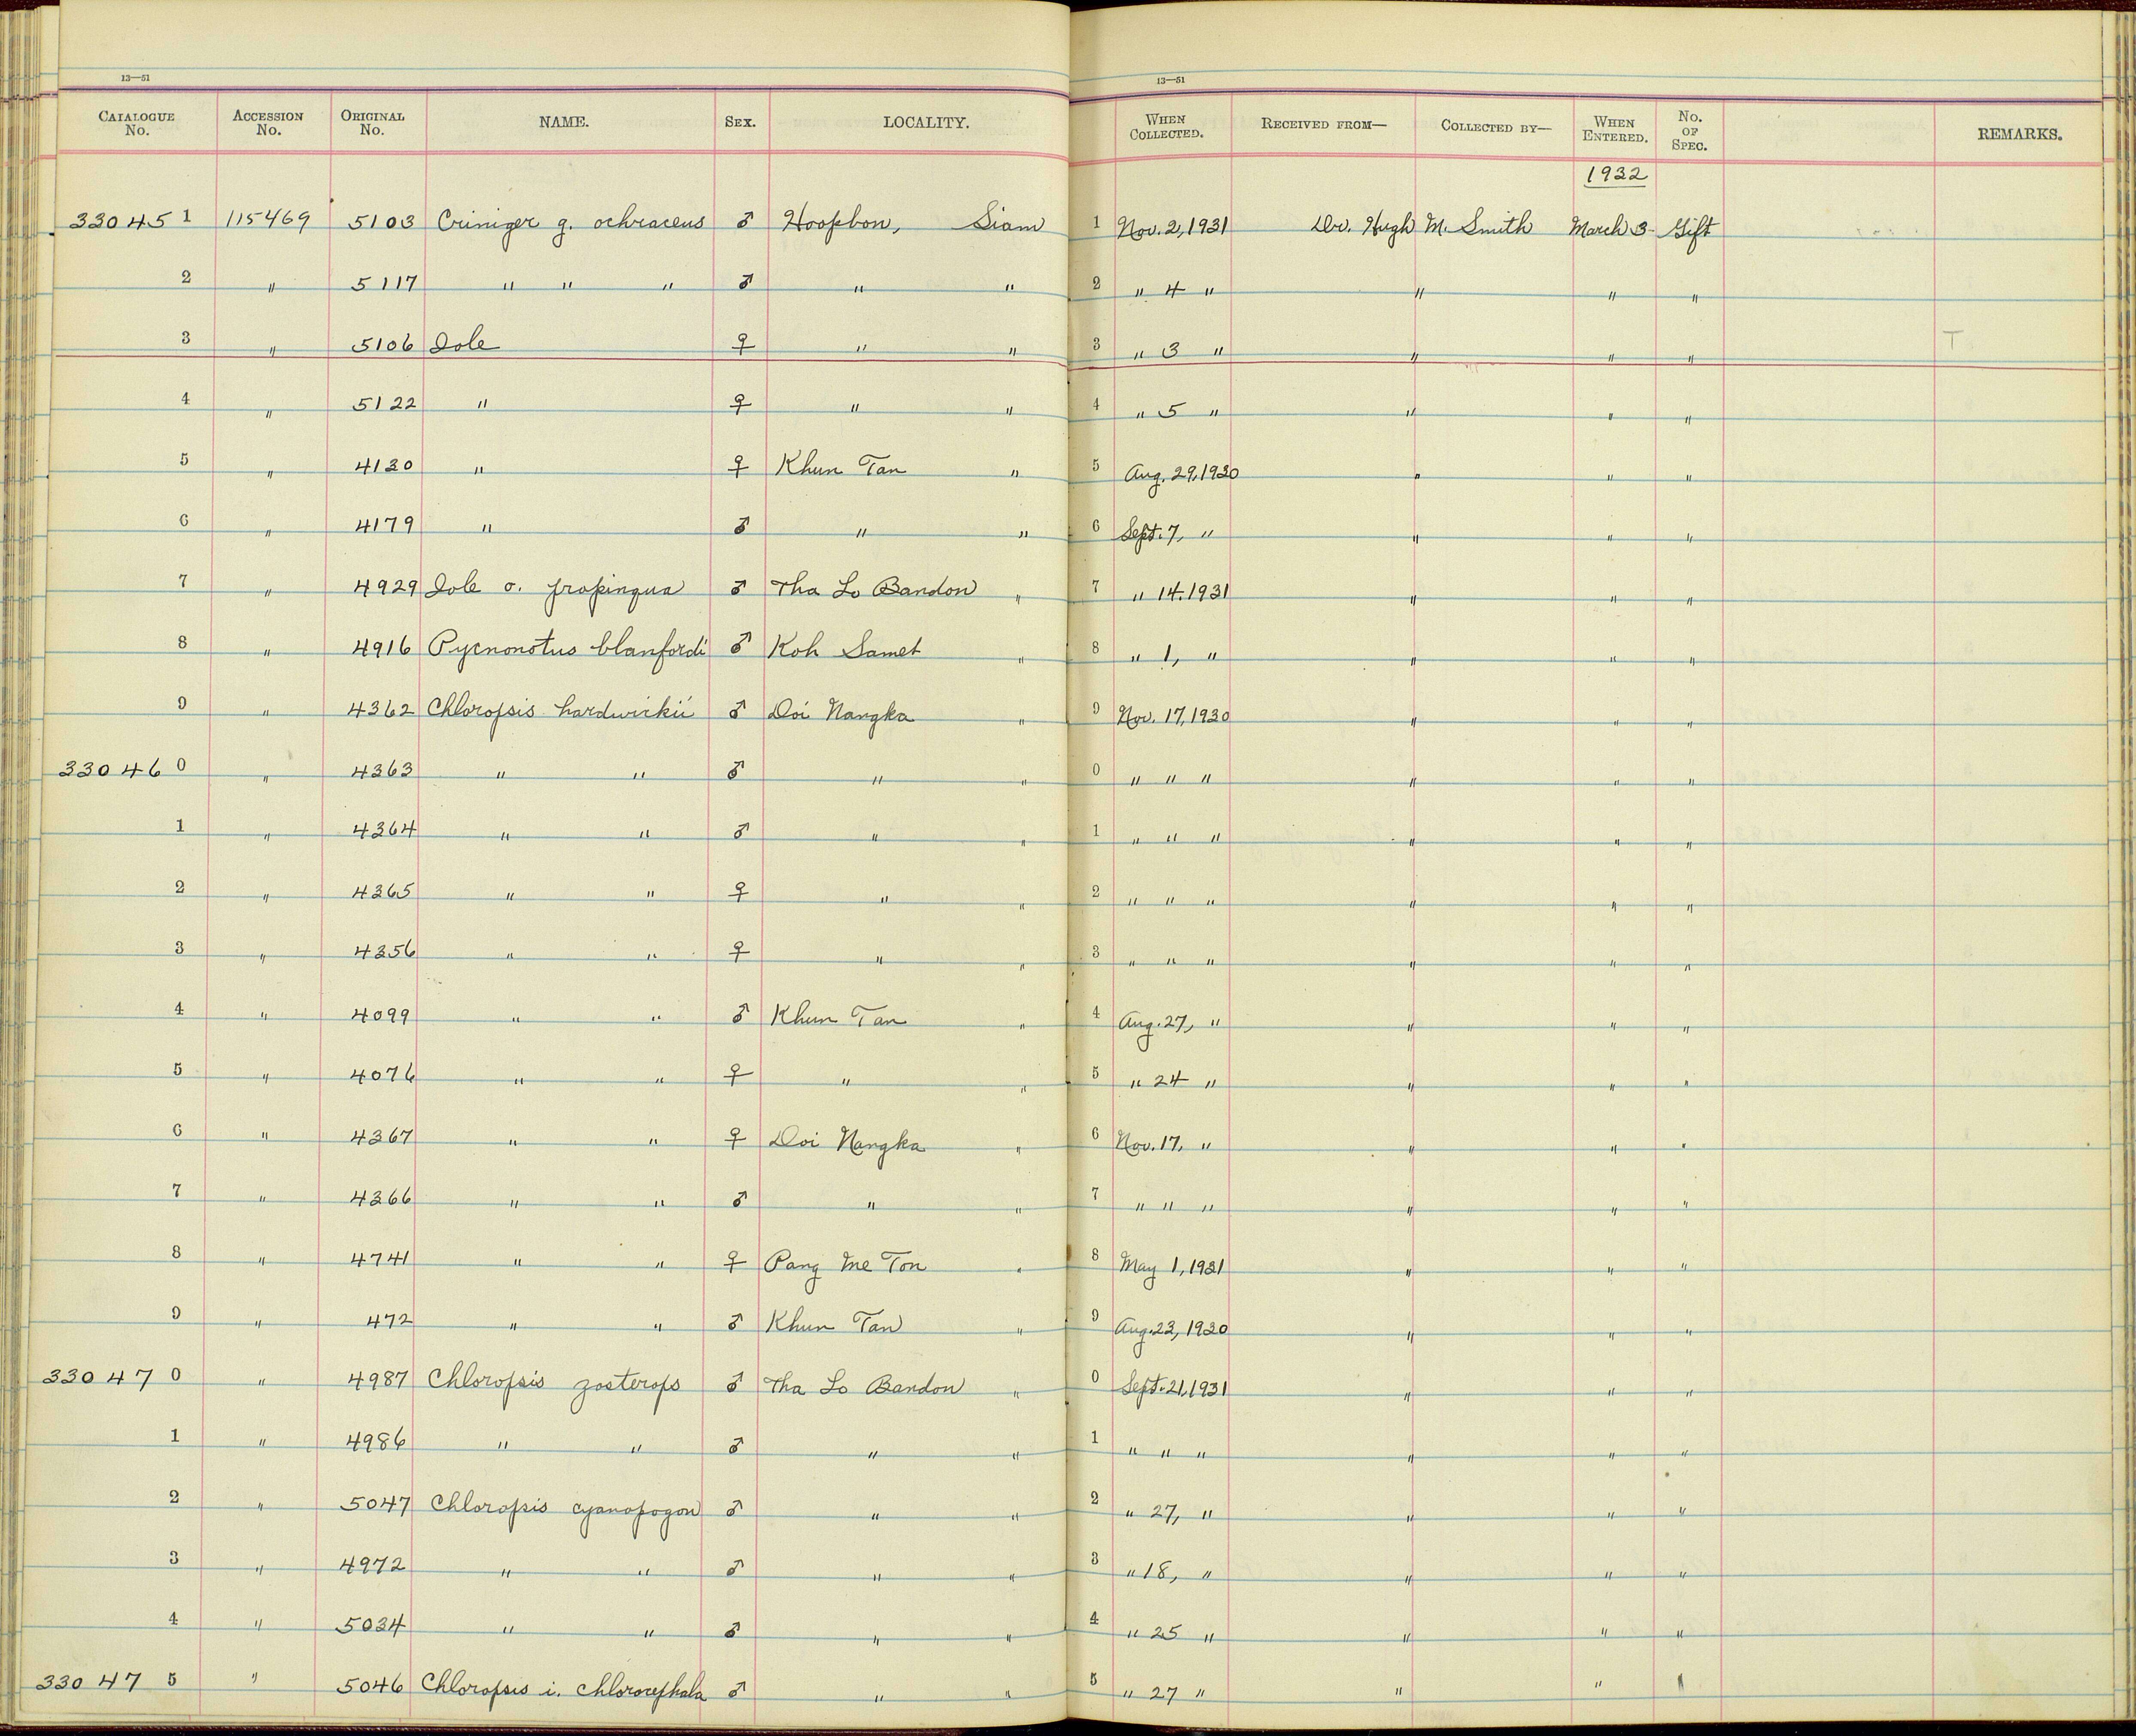 13—51 13—51
CATALOGUE No. ACCESSION No. ORIGINAL No. NAME. SEX. LOCALITY. WHEN COLLECTED. RECEIVED FROM— COLLECTED BY— WHEN ENTERED. No. OF SPEC. REMARKS.
1932
33045 1 115469 5103 Criniger g. ochraceus ♂ Hoopbon, Siam 1 Nov. 2, 1931 Dr. Hugh M. Smith March 3 Gift
2 " 5117 " " " ♂ " " 2 " 4 " " " "
3 " 5106 Iole ♀ " " 3 " 3 " " " " T
4 " 5122 " ♀ " " 4 " 5 " " " "
5 " 4130 " ♀ Khun Tan " 5 Aug. 29, 1930 " " "
6 " 4179 " ♂ " " 6 Sept. 7, " " " "
7 " 4929 Iole o. propinqua ♂ Tha Lo Bandon " 7 " 14, 1931 " " "
8 " 4916 Pycnonotus blanfordi ♂ Koh Samet " 8 " 1, " " " "
9 " 4362 Chloropsis hardwickii ♂ Doi Nangka " 9 Nov. 17, 1930 " " "
33046 0 " 4363 " " ♂ " " 0 " " " " " "
1 " 4364 " " ♂ " " 1 " " " " " "
2 " 4365 " " ♀ " " 2 " " " " " "
3 " 4356 " " ♀ " " 3 " " " " " "
4 " 4099 " " ♂ Khun Tan " 4 Aug. 27, " " " "
5 " 4076 " " ♀ " " 5 " 24 " " " "
6 " 4367 " " ♀ Doi Nangka " 6 Nov. 17, " " " "
7 " 4366 " " ♂ " " 7 " " " " " "
8 " 4741 " " ♀ Pang Me Ton " 8 May 1, 1931 " " "
9 " 472 " " ♂ Khun Tan " 9 Aug. 23, 1930 " " "
33047 0 " 4987 Chloropsis zosterops ♂ Tha Lo Bandon " 0 Sept. 21, 1931 " " "
1 " 4986 " " ♂ " " 1 " " " " " "
2 " 5047 Chloropsis cyanopogon ♂ " " 2 " 27, " " " "
3 " 4972 " " ♂ " " 3 " 18, " " " "
4 " 5034 " " ♂ " " 4 " 25 " " " "
33047 5 " 5046 Chloropsis i. chlorocephala ♂ " " 5 " 27 " " " "